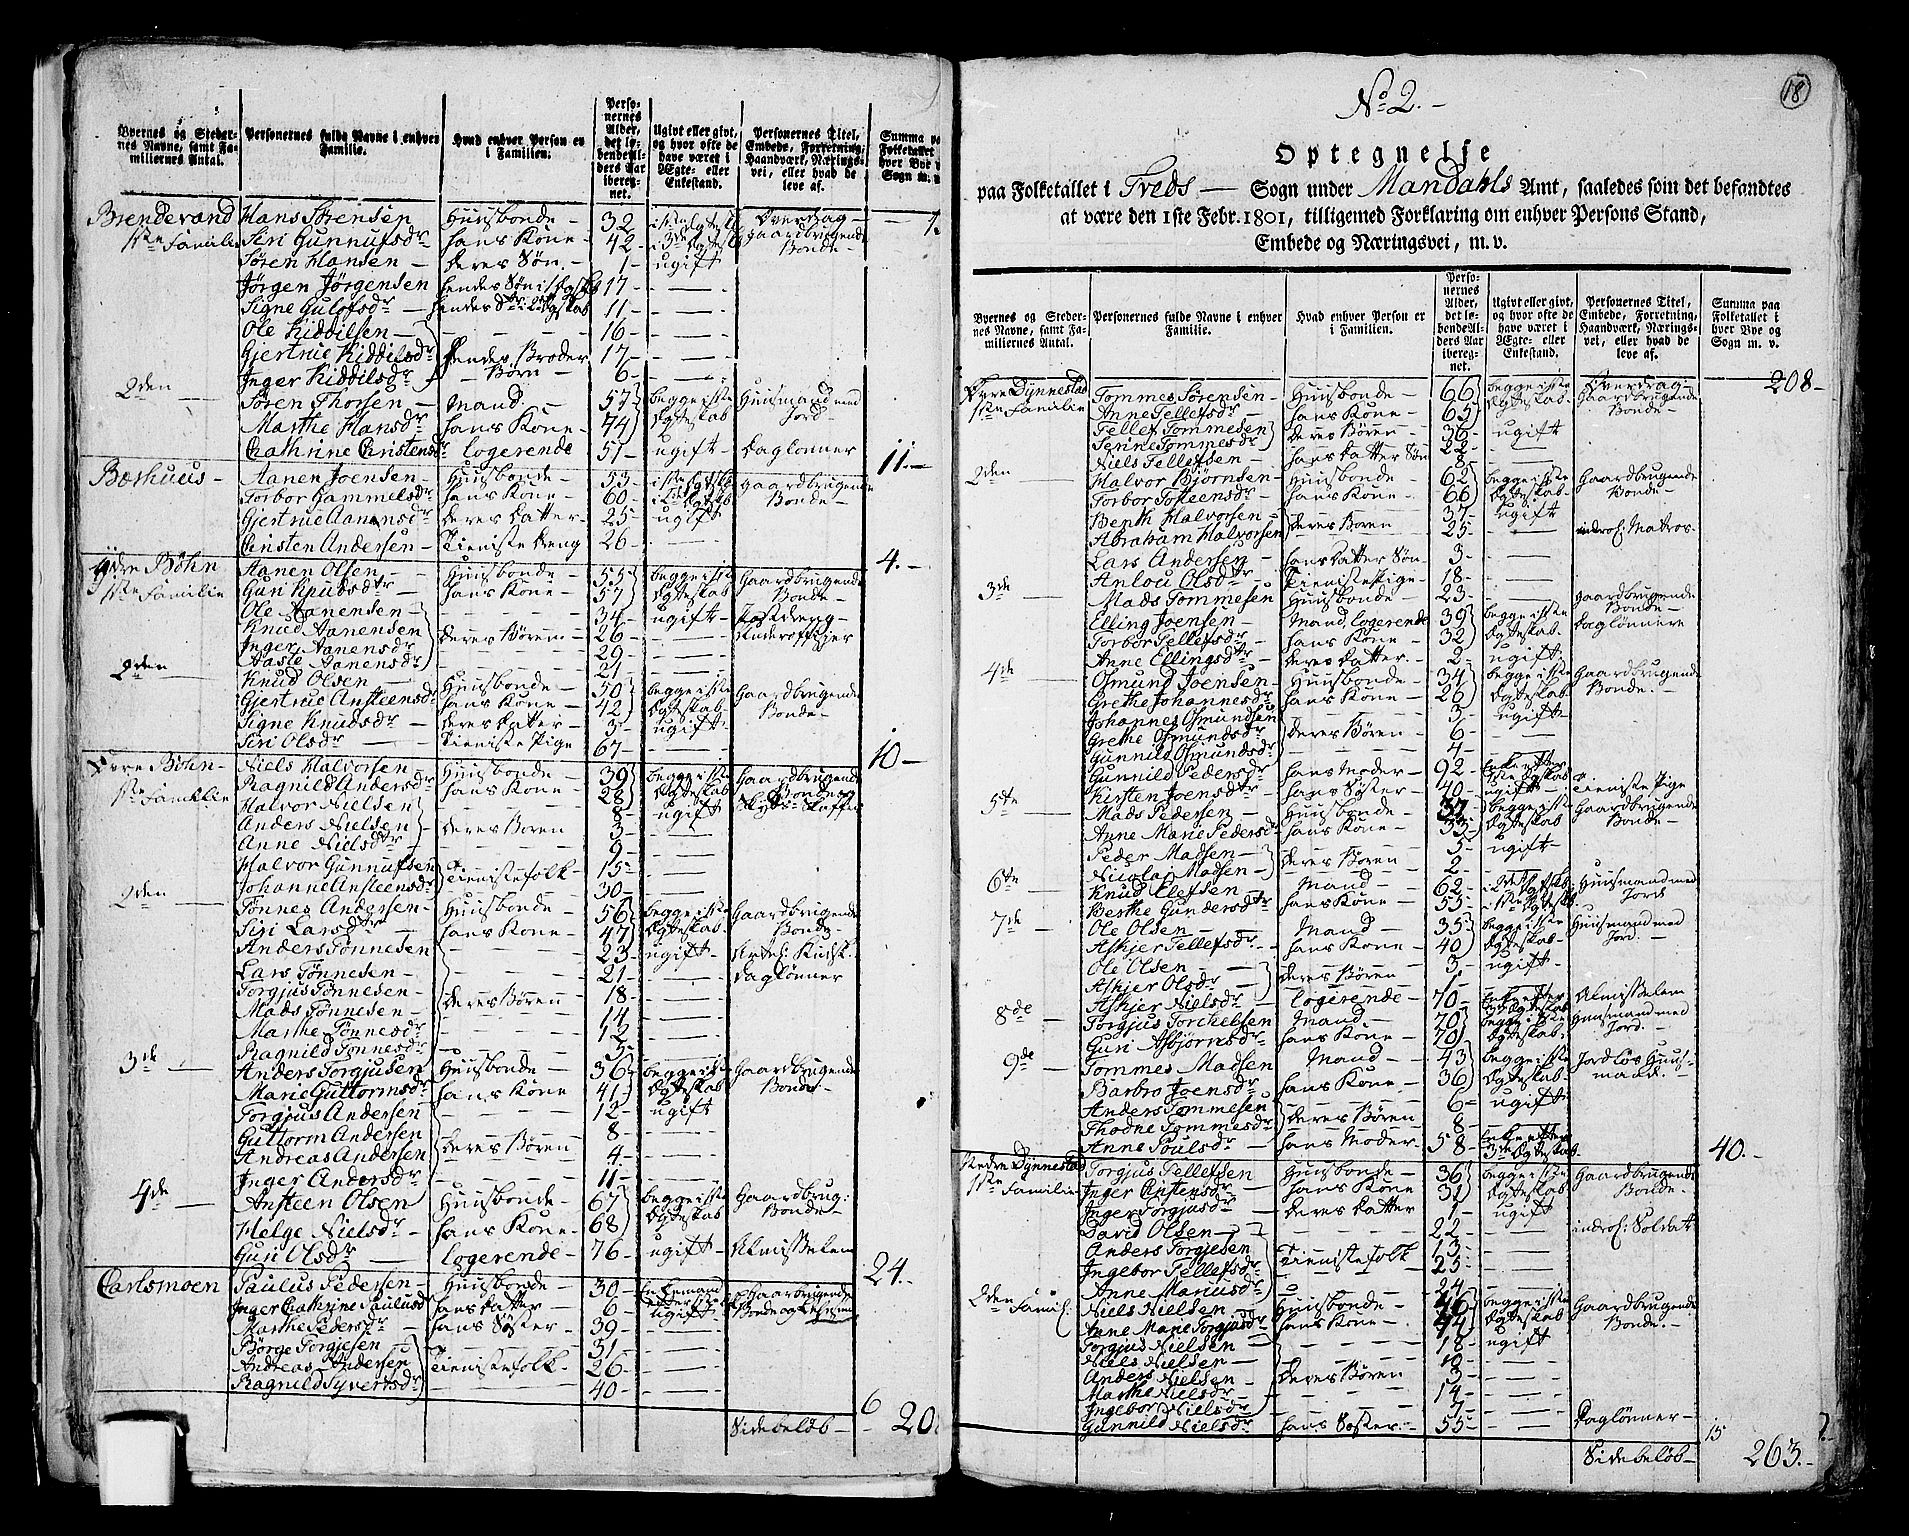 Byernes og Stedernes Navne, samt Familiernes Antal. | Personernes fulde Navne i enhver Familie. | Hvad enhver Person er i Familien. | Personernes Alder, det løbende Alders Aar iberegnet. | Ugivt eller givt, og hvor ofte de have været i Ægte- eller Enkestand. | Personernes Titel, Embede, Forretning, Haandværk, Næringsvei, eller hvad de leve af. | Summa paa Folketallet hver Bye Sogn m. v.
Brendevand Hans Sørensen Huusbonde 32 Overdrag
1ste Familie Siri Gunnufsdr hans Kone 42 gaardbrugende Bonde
Søren Hansen deres Søn 1 ugift
Jørgen Jørgensen 17
Signe Gulofsdr 11
Ole Kiddilsen 16
Gjertrue Kiddilsdr hendes Broder 17
Inger Kiddilsdr Børn 6
2den Søren Thorsen Mand 57 begge 1ste Huusmand med
Marthe Hansdr hans Kone 44 Egteskab Jord
Cathrine Christensdr logerende 51 ugift Daglønner 11.
Bæshuus Aanen Joensen Huusbonde 53 gaardbrugende
Torbor Gammelsdr hans Kone 60 Bonde
Gjertrue Aanensdr deres Datter 25 ugift
Cristen Andersen Tieniste Dreng 26 4.
Ydre Bøhn Aanen Olsen Huusbonde 55 begge 1ste Gaardbrugende
1ste Familie Guri Knudsdtr hans Kone 57 Egteskab Bonde
Ole Aanensen 34 ugift
Knud Aanensen deres Børn 26 Underoffizer
Inger Aanensdr 29
Aasle Aanensdr 21
2den Knud Olsen Huusbonde 50 begge 1ste Gaardbrugende
Gjertrue Ansteensdr hans Kone 42 Egteskab Bonde
Signe Knudsdr deres Datter 3 ugift
Siri Olsdr Tieniste Pige 67 10
Øvre Bøhn Niels Halvorsen Huusbonde 39 begge 1ste Gaardbrugende
1ste Familie Ragnild Andersdr hans Kone 28 Egteskab Bonde og
Halvor Nielsen 8 ugift Skyds-Skaffer
Anders Nielsen deres Børn 3
Anne Nielsdr 9
Halvor Gunnufsen Tienistefolk 15
Johanne Ansteensdr 30
2den Tønnes Andersen Huusbonde 56 begge 1ste Gaardbrugende
Siri Larsdtr hans Kone 47 Egteskab Bonde
Anders Tønnesen 23 ugift Artel: Kudsk
Lars Tønnesen 21 daglønner
Torgjus Tønnesen deres Børen 18
Mads Tønnesen 14
Marthe Tønnesdr 12
Ragnild Tønnesdr 5
3de Anders Torgjusen Huusbonde 36 begge 1ste Gaardbrugende
Marie Guttormsdr hans Kone 41 Egteskab Bonde
Torgjus Andersen 12 ugift
Guttorm Andersen deres Børen 8
Andreas Andersen 4
Inger Andersdr 11
4de Ansteen Olsen Huusbonde 67 begge 1ste Gaardbrug:
Helge Nielsdr hans Kone 68 Egteskab Bonde
Guri Olsdr logerende 76 ugift Almisselem 24.
Carlsmoen Paulus Pedersen Huusbonde 30 Gaardbrugende
Inger Cathrine Paulusdr hans Datter 6 ugift Bonde og
Marthe Pedersdr hans Søster 39
Børge Torgjesen 31
Andreas Andersen Tienistefolk 26
Ragnild Syvertsdr 40 6
Sidebeløb 20
18
No 2.
Optegnelse
paa Folketallet i Treds Sogn under Mandahls Amt, saaledes som det befandtes
at være den 1ste Febr. 1801, tilligemed Forklaring om enhver Persons Stand,
Embede og Næringsvei, m. v.
Byernes og Stedernes Navne, samt Familiernes Antal. | Personernes fulde Navne i enhver Familie. | Hvad enhver Person er i Familien. | Personernes Alder, det løbende Alders Aar iberegnet. | Ugivt eller givt, og hvor ofte de have været i Ægte- eller Enkestand. | Personernes Titel, Embede, Forretning, Haandværk, Næringsvei, eller hvad de leve af. | Summa paa Folketallet i hver Bye og Sogn m. v.
208
Øvre Dynnestad Tommes Sørensen Huusbonde 66 begge 1ste Overdrag
1ste Familie Anne Tellefsdr hans Kone 65 Egteskab Gaardbrugende Bonde
Tellef Tommesen deres Børen 36 ugift
Serine Tommesdr 22
Niels Tellefsen hans Datter Søn 8
2den Halvor Bjørnsen Huusbonde 62 begge 1ste Gaardbrugende
Torbor Tosteensdr hans Kone 66 Egteskab Bonde
Benth Halvorsen deres Børen 37 ugift
Abraham Halvorsen 25 indrol: Matros
Lars Andersen hans Datter Søn 3
Anlou Olsdtr Tieniste Pige 18
3de Mads Tommesen Huusbonde 23 gaardbrugende Bonde
Elling Joensen Mand, logerende 39 begge 1ste Daglønnere
Torbor Tellefsdr hans Kone 32 Egteskab
Anne Ellingsdtr deres Datter 2 ugift
4de Osmund Joensen Huusbonde 34 begge 1ste Gaardbrugende
Grethe Johannesdr hans Kone 26 Egteskab Bonde
Johannes Osmundsen 3 ugift
Grethe Osmundsdr deres Børen 6
Gunnild Osmundsdr 4
Gunnild Pedersdr hans Moder 92 Enke efter 1ste Egteskab
Kirsten Joensdtr hans Søster 40 ugift Tieniste Pige
5te Mads Pedersen Huusbonde 37 begge 1ste Gaardbrugende
Anne Marie Pedersdr hans Kone 33 Egteskab Bonde
Peder Madsen deres Børen 5 ugift
Nicolai Madsen 2
6te Knud Elefsen Mand 62 Huusmand med
Berthe Gundersdtr hans Kone 55 Jord
7de Ole Olsen Mand 35 begge 1ste Huusmand med
Askjer Tellefsdr hans Kone 40 Egteskab Jord
Ole Olsen deres Børen 3 ugift
Askjer Olsdr 1
Askjer Nielsdr logerende 70 Enke efter Almisselem
8de Torgjus Torchelsen Mand 79 Huusmand med
Guri Asbjørnsdr hans Kone 70 Jord
9de Tommes Madsen Mand 43 begge 1ste Jordløs Huusmand
Barbro Joensdr hans Kone 36 Egteskab
Anders Tommesen deres Børen 6 ugift
Thodne Tommesdr 8
Anne Poulsdr hans Moder 58 Enke efter 3de Egteskab 40.
Nedre Dynnestad Torgjus Tellefsen Huusbonde 36 begge 1ste Gaardbrugende
1ste Familie Inger Cristensdr hans Kone 31 Egteskab Bonde
Inger Torgjusdr deres Datter 1 ugift
David Olsen 22 indrol: Soldat
Anders Torgjesen Tienistefolk 13
Ingebor Tellefsdr 25
Anne Mariusdr 24
2den Famil: Niels Nielsen Huusbonde 46 begge 1ste Gaardbrugende
Anne Marie Torgjusdr hans Kone 44 Egteskab Bonde
Torgjus Nielsen 18 ugift
Niels Nielsen 10
Anders Nielsen deres Børen 3
Marthe Nielsdr 14
Ingebor Nielsdr 7
Gunnild Nielsdr hans Søster 55 Daglønner 15
Sidebeløb 263.